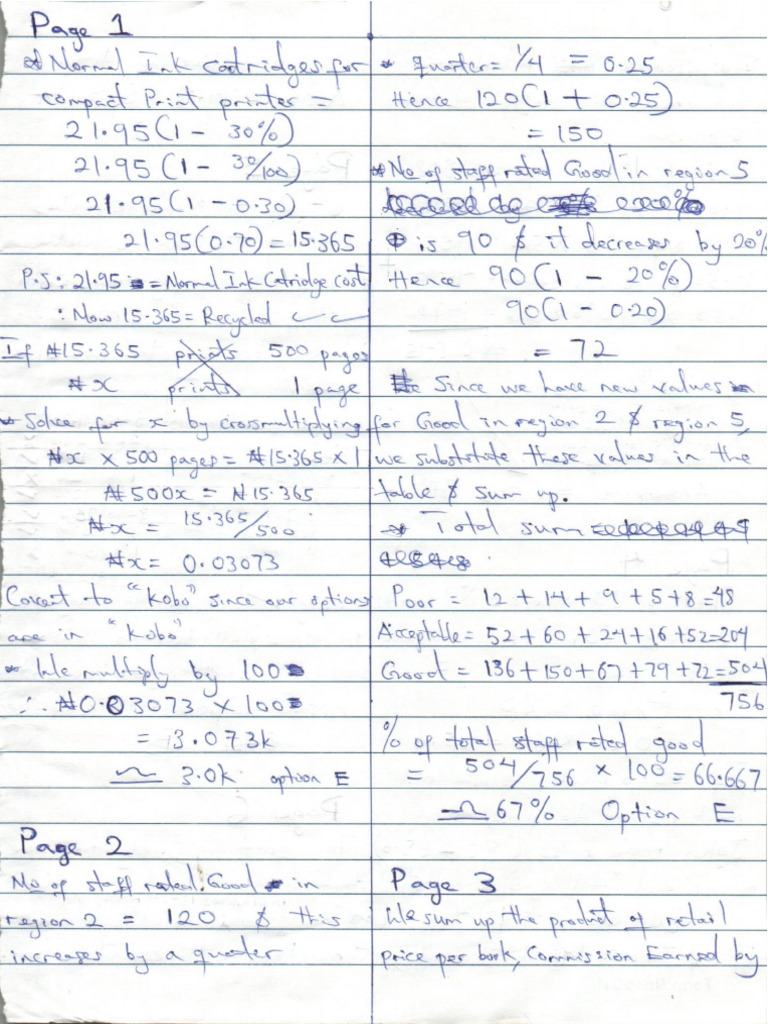 Page 1
* Normal Ink cartridges for
compact Print printer =
21.95(1 - 30%)
21.95(1 - 30/100)
21.95(1 - 0.30)
21.95(0.70) = 15.365
P.S: 21.95 = Normal Ink Catridge cost
: Now 15.365 = Recycled
If ₦15.365 prints 500 pages
₦x prints 1 page
* Solve for x by crossmultiplying
₦x × 500 pages = ₦15.365 × 1
₦500x = ₦15.365
₦x = 15.365/500
₦x = 0.03073
Covert to "kobo" since our options
are in "kobo"
* We multiply by 100
∴ ₦0.03073 × 100
= 3.073k
≃ 3.0k option E
Page 2
No of staff rated Good in
region 2 = 120 & this
increases by a quater
* quarter = 1/4 = 0.25
Hence 120(1 + 0.25)
= 150
* No of staff rated Good in region 5
is 90 & it decreases by 20%
Hence 90(1 - 20%)
90(1 - 0.20)
= 72
Since we have new values
for Good in region 2 & region 5,
we substitute these values in the
table & sum up.
* Total sum
Poor = 12 + 14 + 9 + 5 + 8 = 48
Acceptable = 52 + 60 + 24 + 16 + 52 = 204
Good = 136 + 150 + 67 + 79 + 72 = 504
756
% of total staff rated good
= 504/756 × 100 = 66.667
≃ 67% Option E
Page 3
We sum up the product of retail
price per book, Commission Earned by